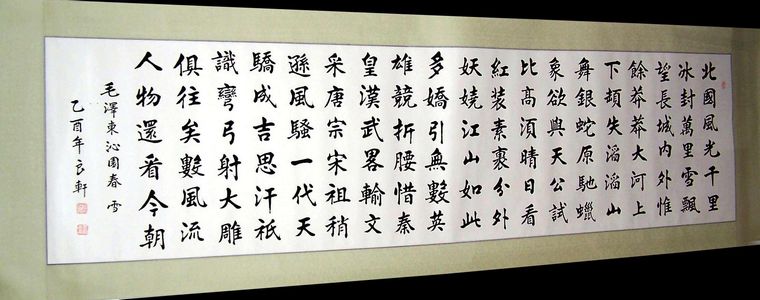 北國風光千里
冰封萬里雪飄
望長城內外惟
餘莽莽大河上
下頓失滔滔山
舞銀蛇原馳蠟
象欲與天公試
比高須晴日看
紅装素裹分外
妖嬈江山如此
多嬌引無數英
雄競折腰惜秦
皇漢武畧輸文
采唐宗宋祖稍
遜風騷一代天
驕成吉思汗祇
識彎弓射大雕
俱往矣數風流
人物還看今朝
毛澤東沁園春 雪
乙酉年良軒